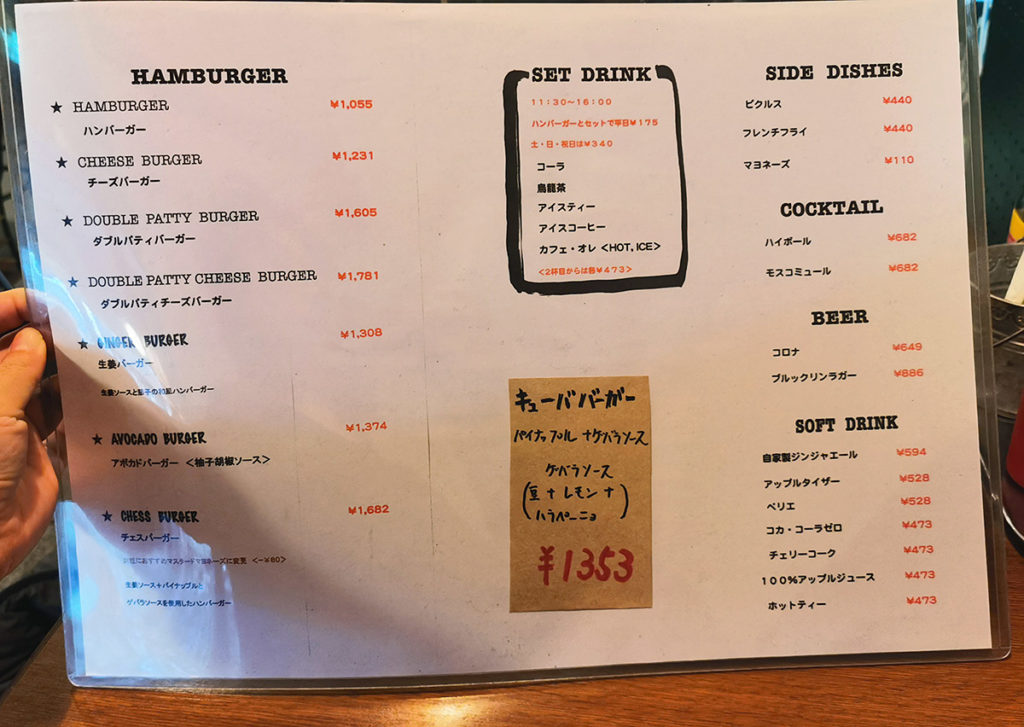 HAMBURGER
★ HAMBURGER ¥1,055
ハンバーガー
★ CHEESE BURGER ¥1,231
チーズバーガー
★ DOUBLE PATTY BURGER ¥1,605
ダブルパティバーガー
★ DOUBLE PATTY CHEESE BURGER ¥1,781
ダブルパティチーズバーガー
★ GINGER BURGER ¥1,308
生姜バーガー
生姜ソースと茄子の和風ハンバーガー
★ AVOCADO BURGER ¥1,374
アボカドバーガー <柚子胡椒ソース>
★ CHESS BURGER ¥1,682
チェスバーガー
におすすめマスタードマヨネーズに変更 <-¥60>
生姜ソース+パイナップルと
ゲバラソースを使用したハンバーガー
SET DRINK
11:30~16:00
ハンバーガーとセットで平日¥175
土・日・祝日は¥340
コーラ
烏龍茶
アイスティー
アイスコーヒー
カフェ・オレ <HOT, ICE>
<2杯目からは各¥473>
キューババーガー
パイナップル +ゲバラソース
ゲバラソース
(豆+レモン+
ハラペーニョ)
¥1353
SIDE DISHES
ピクルス ¥440
フレンチフライ ¥440
マヨネーズ ¥110
COCKTAIL
ハイボール ¥682
モスコミュール ¥682
BEER
コロナ ¥649
ブルックリンラガー ¥886
SOFT DRINK
自家製ジンジャエール ¥594
アップルタイザー ¥528
ペリエ ¥528
コカ・コーラゼロ ¥473
チェリーコーク ¥473
100%アップルジュース ¥473
ホットティー ¥473